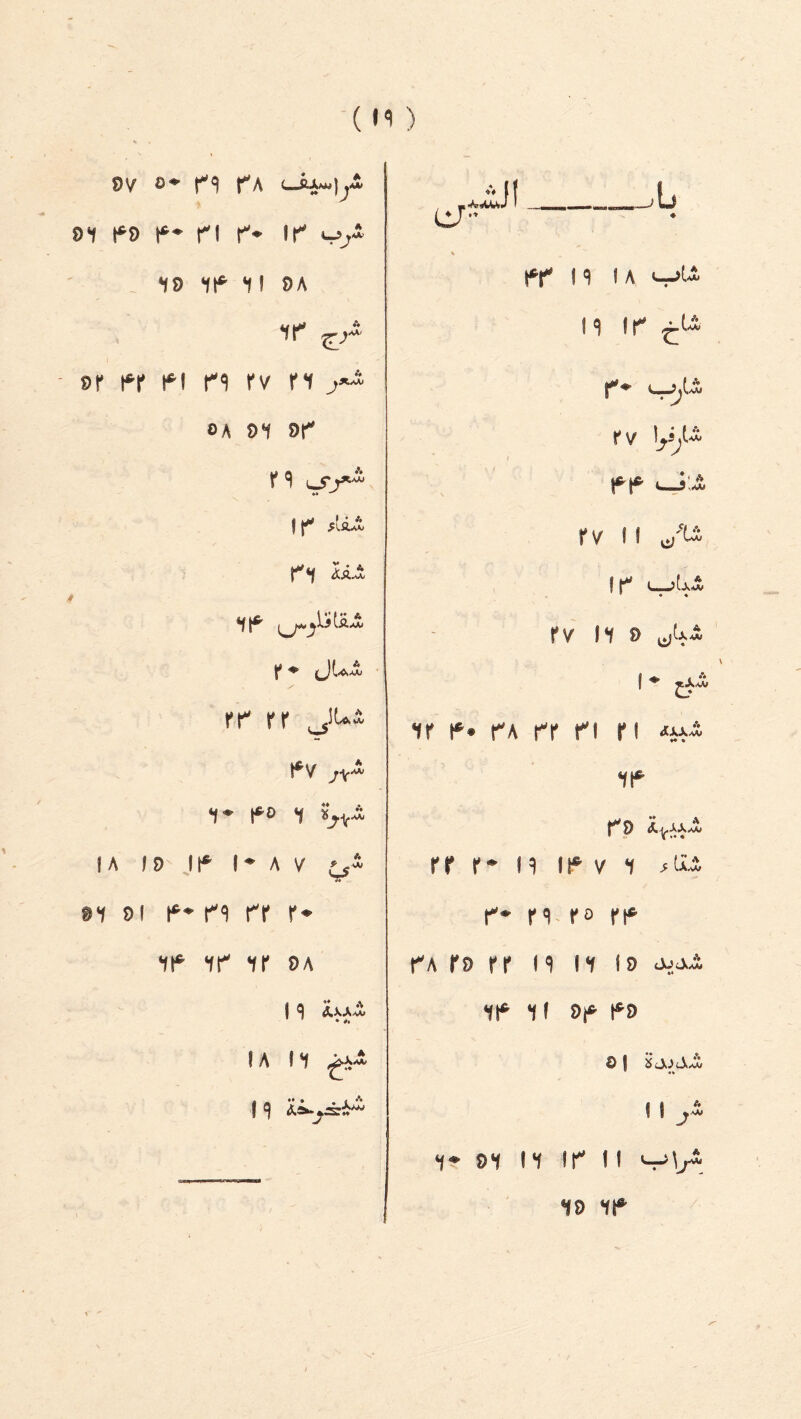 (۱۹)
باب الشين
شاب ۱۸ ۱۹ ۴۲
شاخ ۱۳ ۱۹
شارب ۳۰
۲۷
شاف ۴۴
شأن ۱۱ ۲۷
شباب ۱۳
شبان ۵ ۱۶ ۲۷
شبع ۱۰
شبيه ۲۱ ۳۱ ۳۲ ۳۸ ۴۰ ۶۲
۶۴
شبيهة ۳۵
شتاء ۶ ۷ ۱۴ ۱۹ ۲۰ ۲۲
۲۴ ۲۵ ۲۹ ۳۰
شديد ۱۵ ۱۶ ۱۹ ۲۲ ۲۵ ۳۸
۴۵ ۵۴ ۶۱ ۶۴
شديدة ۵۱
شر ۱۱
شراب ۱۱ ۱۳ ۱۶ ۵۶ ۶۰
۶۴ ۶۵
شراسيف ۳۸ ۳۹ ۵۰ ۵۷
شرب ۱۳ ۳۰ ۳۱ ۴۰ ۴۵ ۵۶
۵۸ ۶۱ ۶۴ ۶۵
شرج ۶۳
شعر ۲۶ ۲۷ ۳۹ ۴۱ ۴۲ ۵۲
۵۳ ۵۶ ۵۸
شعرى ۲۹
شفاء ۱۳
شفة ۳۶
شقاقلوس ۶۴
شمال ۲۰
شمالى ۲۲ ۲۳
شهر ۴۷
شهوة ۶ ۴۵ ۶۰
شىء ۷ ۸ ۱۰ ۱۴ ۱۵ ۱۸
۲۰ ۳۲ ۳۹ ۴۰ ۵۱ ۵۶
۵۸ ۶۲ ۶۳ ۶۴
شيبة ۱۹
شيخ ۱۶ ۱۸
شيخوخة ۱۹